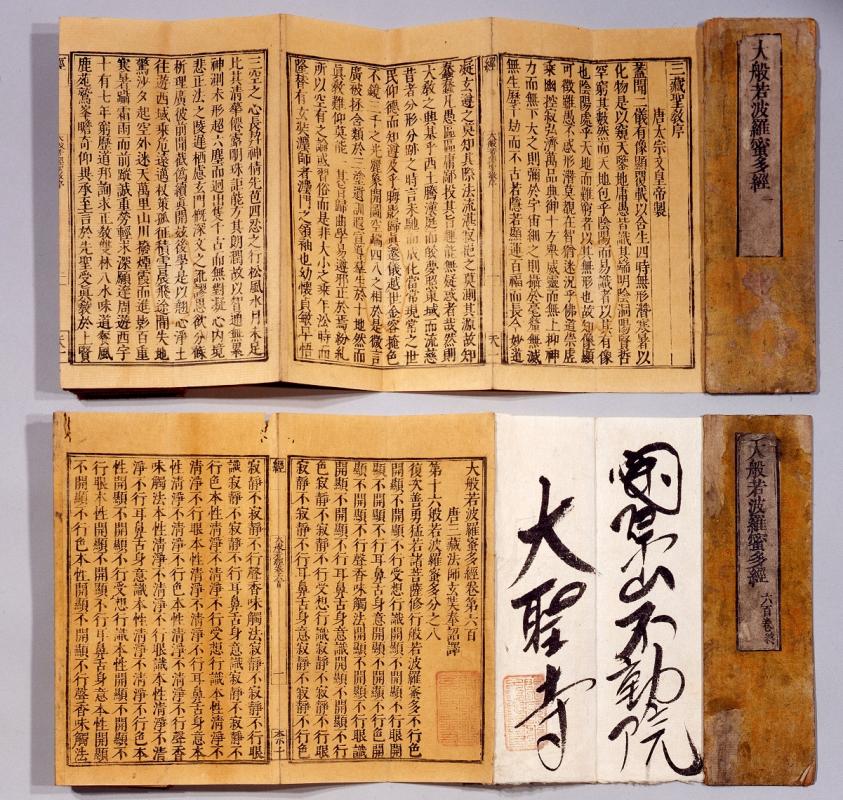 大般若波羅蜜多經 一
三藏聖敎序
唐太宗文皇帝製
蓋聞二儀有像顯覆載以含生四時無形潛寒暑以
化物是以窺天鑒地庸愚皆識其端明陰洞陽賢哲
罕窮其數然而天地包乎陰陽而易識者以其有像
也陰陽處乎天地而難窮者以其無形也故知像顯
可徵雖愚不惑形潛莫覩在智猶迷況乎佛道崇虛
乘幽控寂弘濟萬品典御十方舉威靈而無上抑神
力而無下大之則彌於宇宙細之則攝於毫釐無滅
無生歷千劫而不古若隱若顯運百福而長今妙道
凝玄遵之莫知其際法流湛寂挹之莫測其源故知
蠢蠢凡愚區區庸鄙投其旨趣能無疑惑者哉然則
大敎之興基乎西土騰漢庭而皎夢照東域而流慈
昔者分形分跡之時言未馳而成化當常現常之世
民仰德而知遵及乎晦影歸眞遷儀越世金容掩色
不鏡三千之光麗象開圖空端四八之相於是微言
廣被拯含類於三塗遺訓遐宣導羣生於十地然而
眞敎難仰莫能一其旨歸曲學易遵邪正於焉紛糺
所以空有之論或習俗而是非大小之乘乍沿時而
隆替有玄奘法師者法門之領袖也幼懷貞敏早悟
三空之心長契神情先苞四忍之行松風水月未足
比其清華僊露明珠詎能方其朗潤故以智通無累
神測未形超六塵而迥出隻千古而無對凝心內境
悲正法之陵遲栖慮玄門慨深文之訛謬思欲分條
析理廣彼前聞截僞續眞開茲後學是以翹心淨土
往遊西域乘危遠邁杖策孤征積雪晨飛途間失地
驚沙夕起空外迷天萬里山川撥煙霞而進影百重
寒暑躡霜雨而前蹤誠重勞輕求深願達周遊西宇
十有七年窮歷道邦詢求正敎雙林八水味道餐風
鹿苑鷲峯瞻奇仰異承至言於先聖受眞敎於上賢
大般若波羅蜜多經 六百卷終
山不動院
大聖寺
大般若波羅蜜多經卷第六百
唐三藏法師玄奘奉詔譯
第十六般若波羅蜜多分之八
復次善勇猛若諸菩薩修行般若波羅蜜多不行色
開顯不開顯不行受想行識開顯不開顯不行眼開
顯不開顯不行耳鼻舌身意開顯不開顯不行色開
顯不開顯不行聲香味觸法開顯不開顯不行眼識
開顯不開顯不行耳鼻舌身意識開顯不開顯不行
色寂靜不寂靜不行受想行識寂靜不寂靜不行眼
寂靜不寂靜不行耳鼻舌身意寂靜不寂靜不行色
寂靜不寂靜不行聲香味觸法寂靜不寂靜不行眼
識寂靜不寂靜不行耳鼻舌身意識寂靜不寂靜不
行色本性清淨不清淨不行受想行識本性清淨不
清淨不行眼本性清淨不清淨不行耳鼻舌身意本
性清淨不清淨不行色本性清淨不清淨不行聲香
味觸法本性清淨不清淨不行眼識本性清淨不清
淨不行耳鼻舌身意識本性清淨不清淨不行色本
性開顯不開顯不行受想行識本性開顯不開顯不
行眼本性開顯不開顯不行耳鼻舌身意本性開顯
不開顯不行色本性開顯不開顯不行聲香味觸法